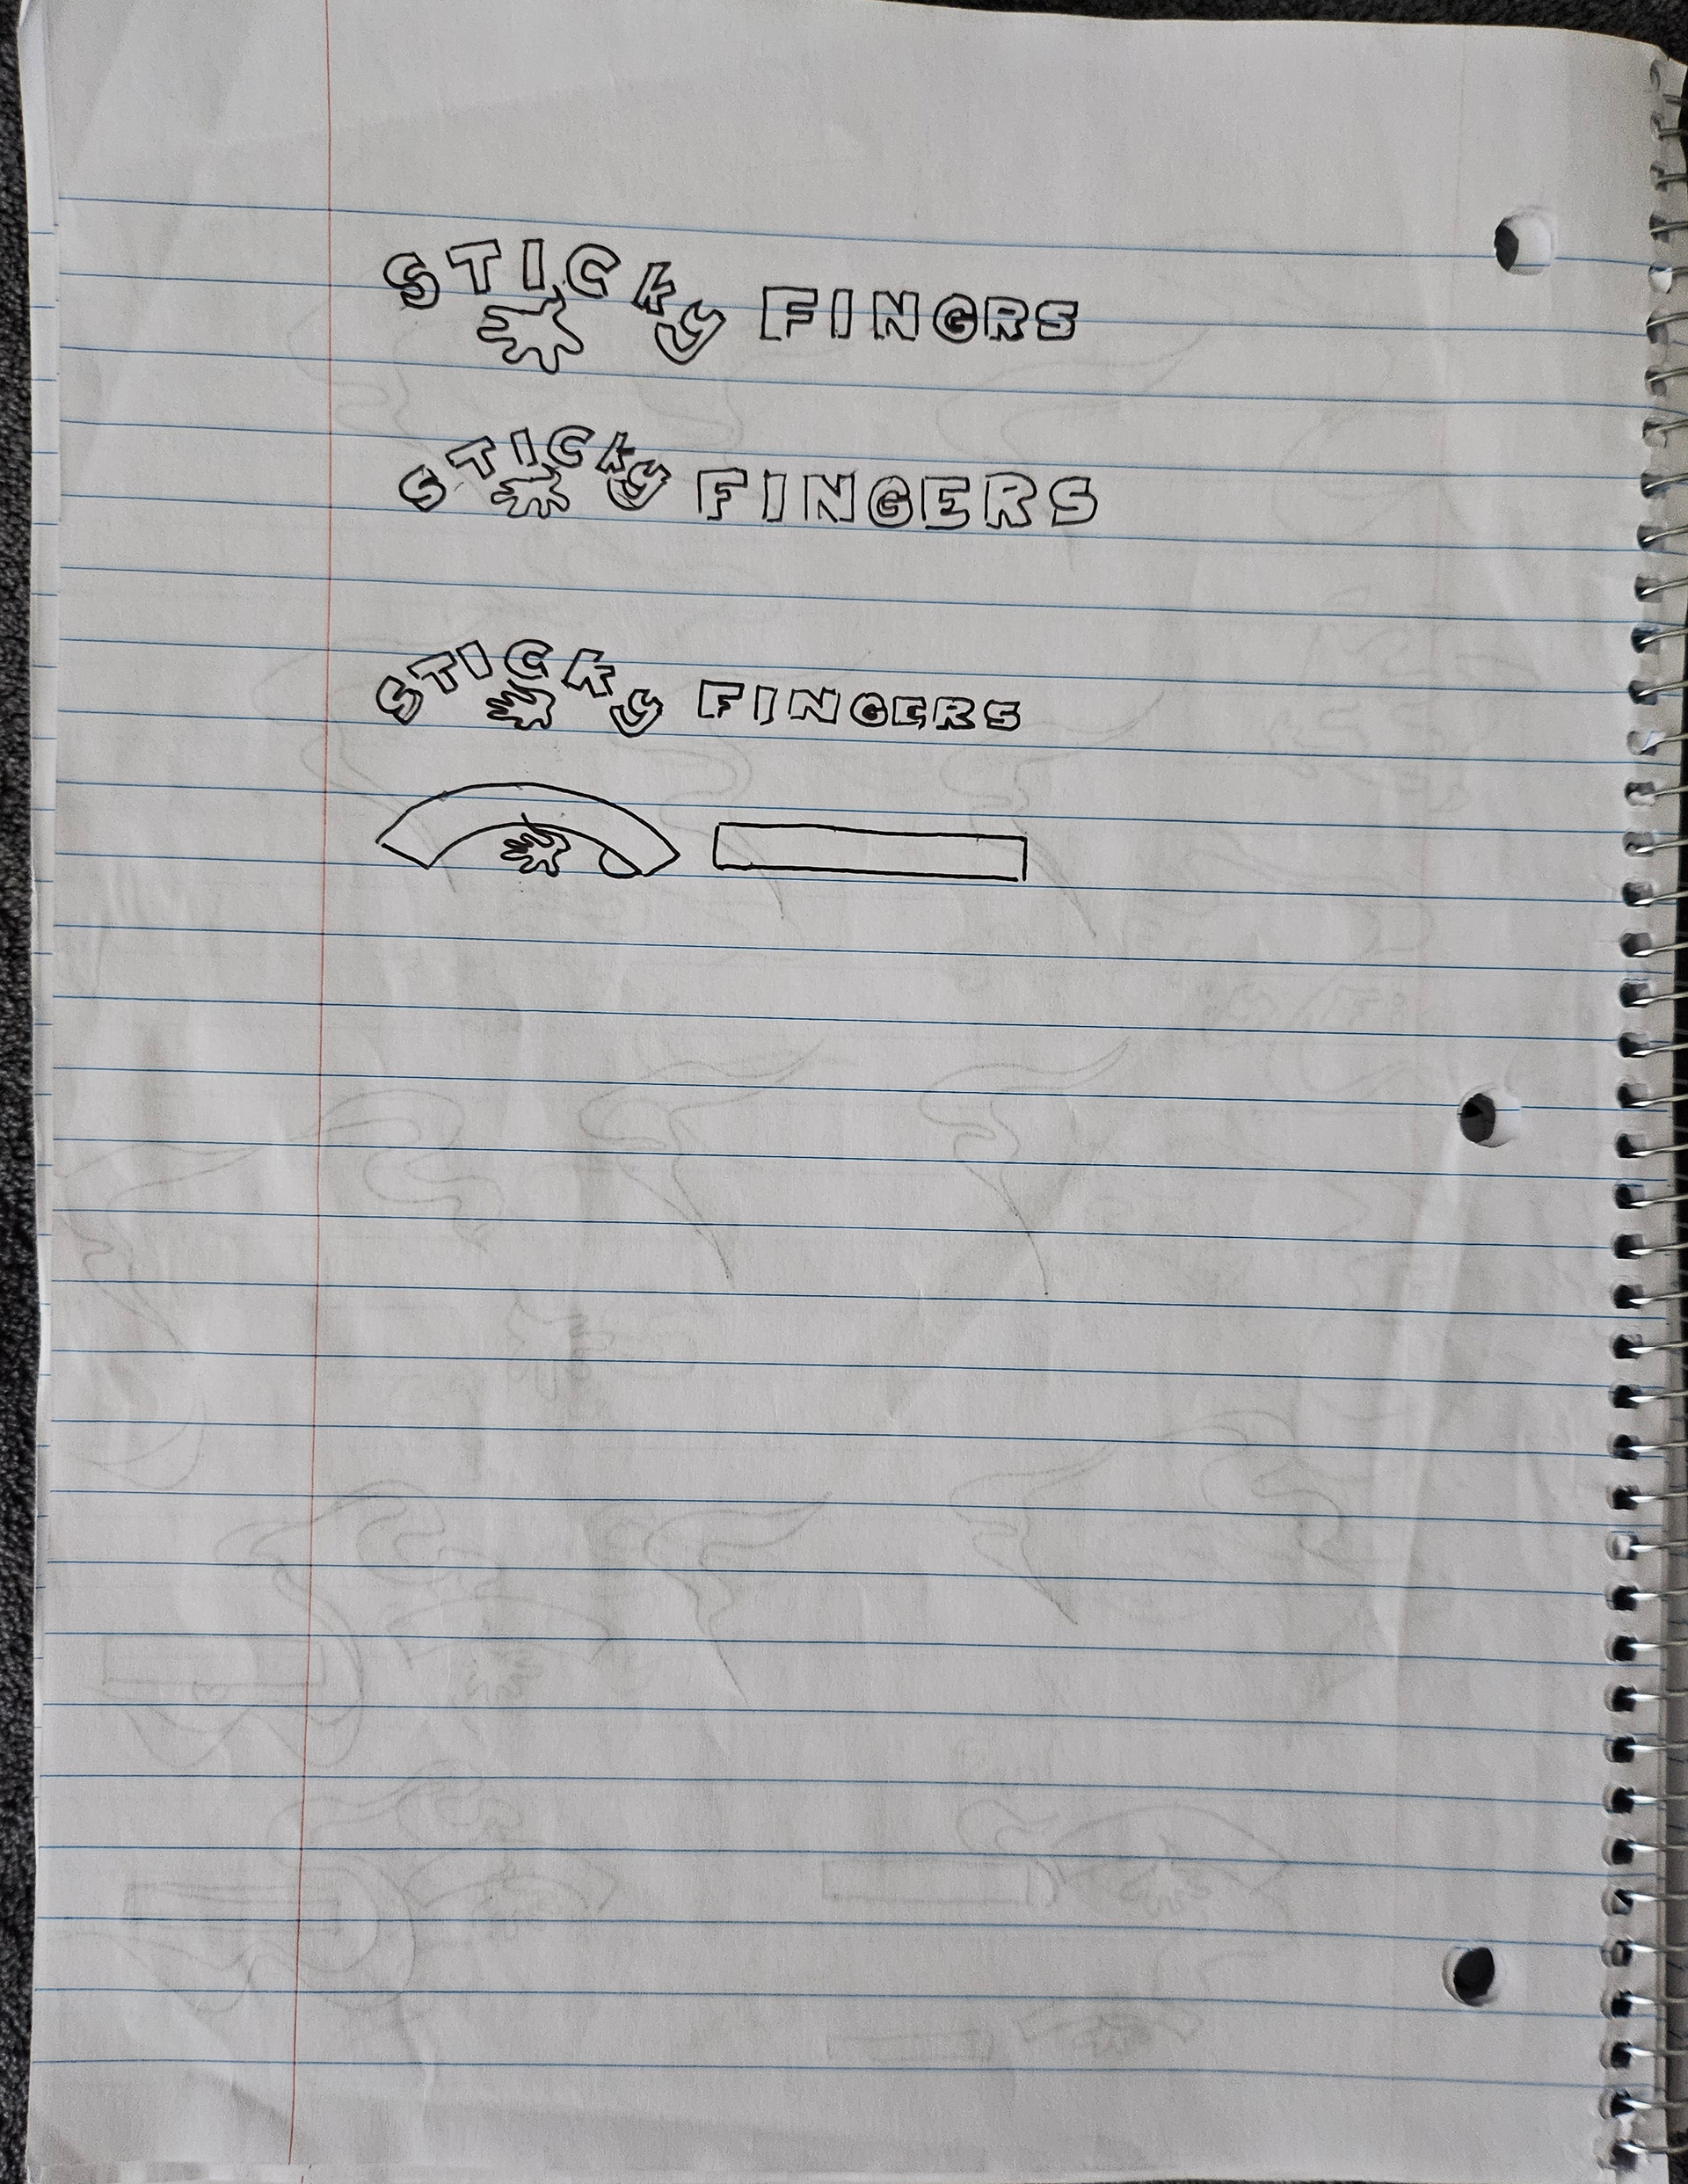 STICKY FINGRS
STICKY FINGERS
STICKY FINGERS